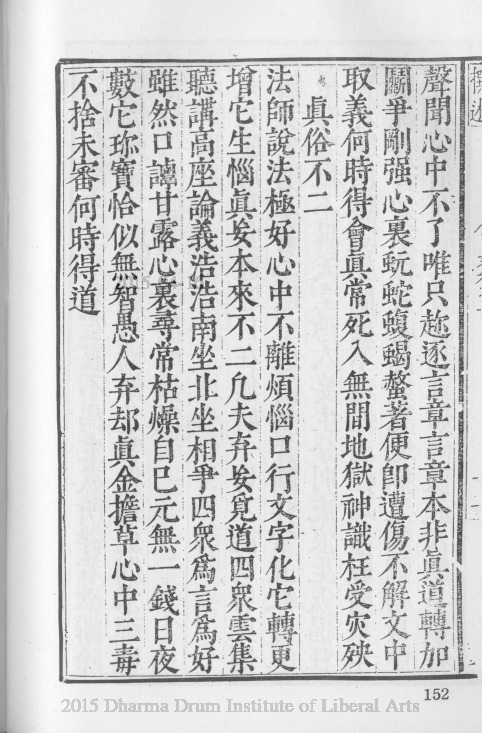 聲聞心中不了唯只趂逐言章言章本非眞道轉加
鬭爭剛强心裏蚖蛇蝮蝎螫著便卽遭傷不解文中
取義何時得會眞常死入無間地獄神識枉受灾殃
眞俗不二
法師說法極好心中不離煩惱口行文字化它轉更
增它生惱眞妄本來不二凡夫弃妄覓道四衆雲集
聽講高座論義浩浩南坐北坐相爭四衆爲言爲好
雖然口談甘露心裏尋常枯燥自己元無一錢日夜
數它珎寶恰似無智愚人弃却眞金擔草心中三毒
不捨未審何時得道
152
2015 Dharma Drum Institute of Liberal Arts